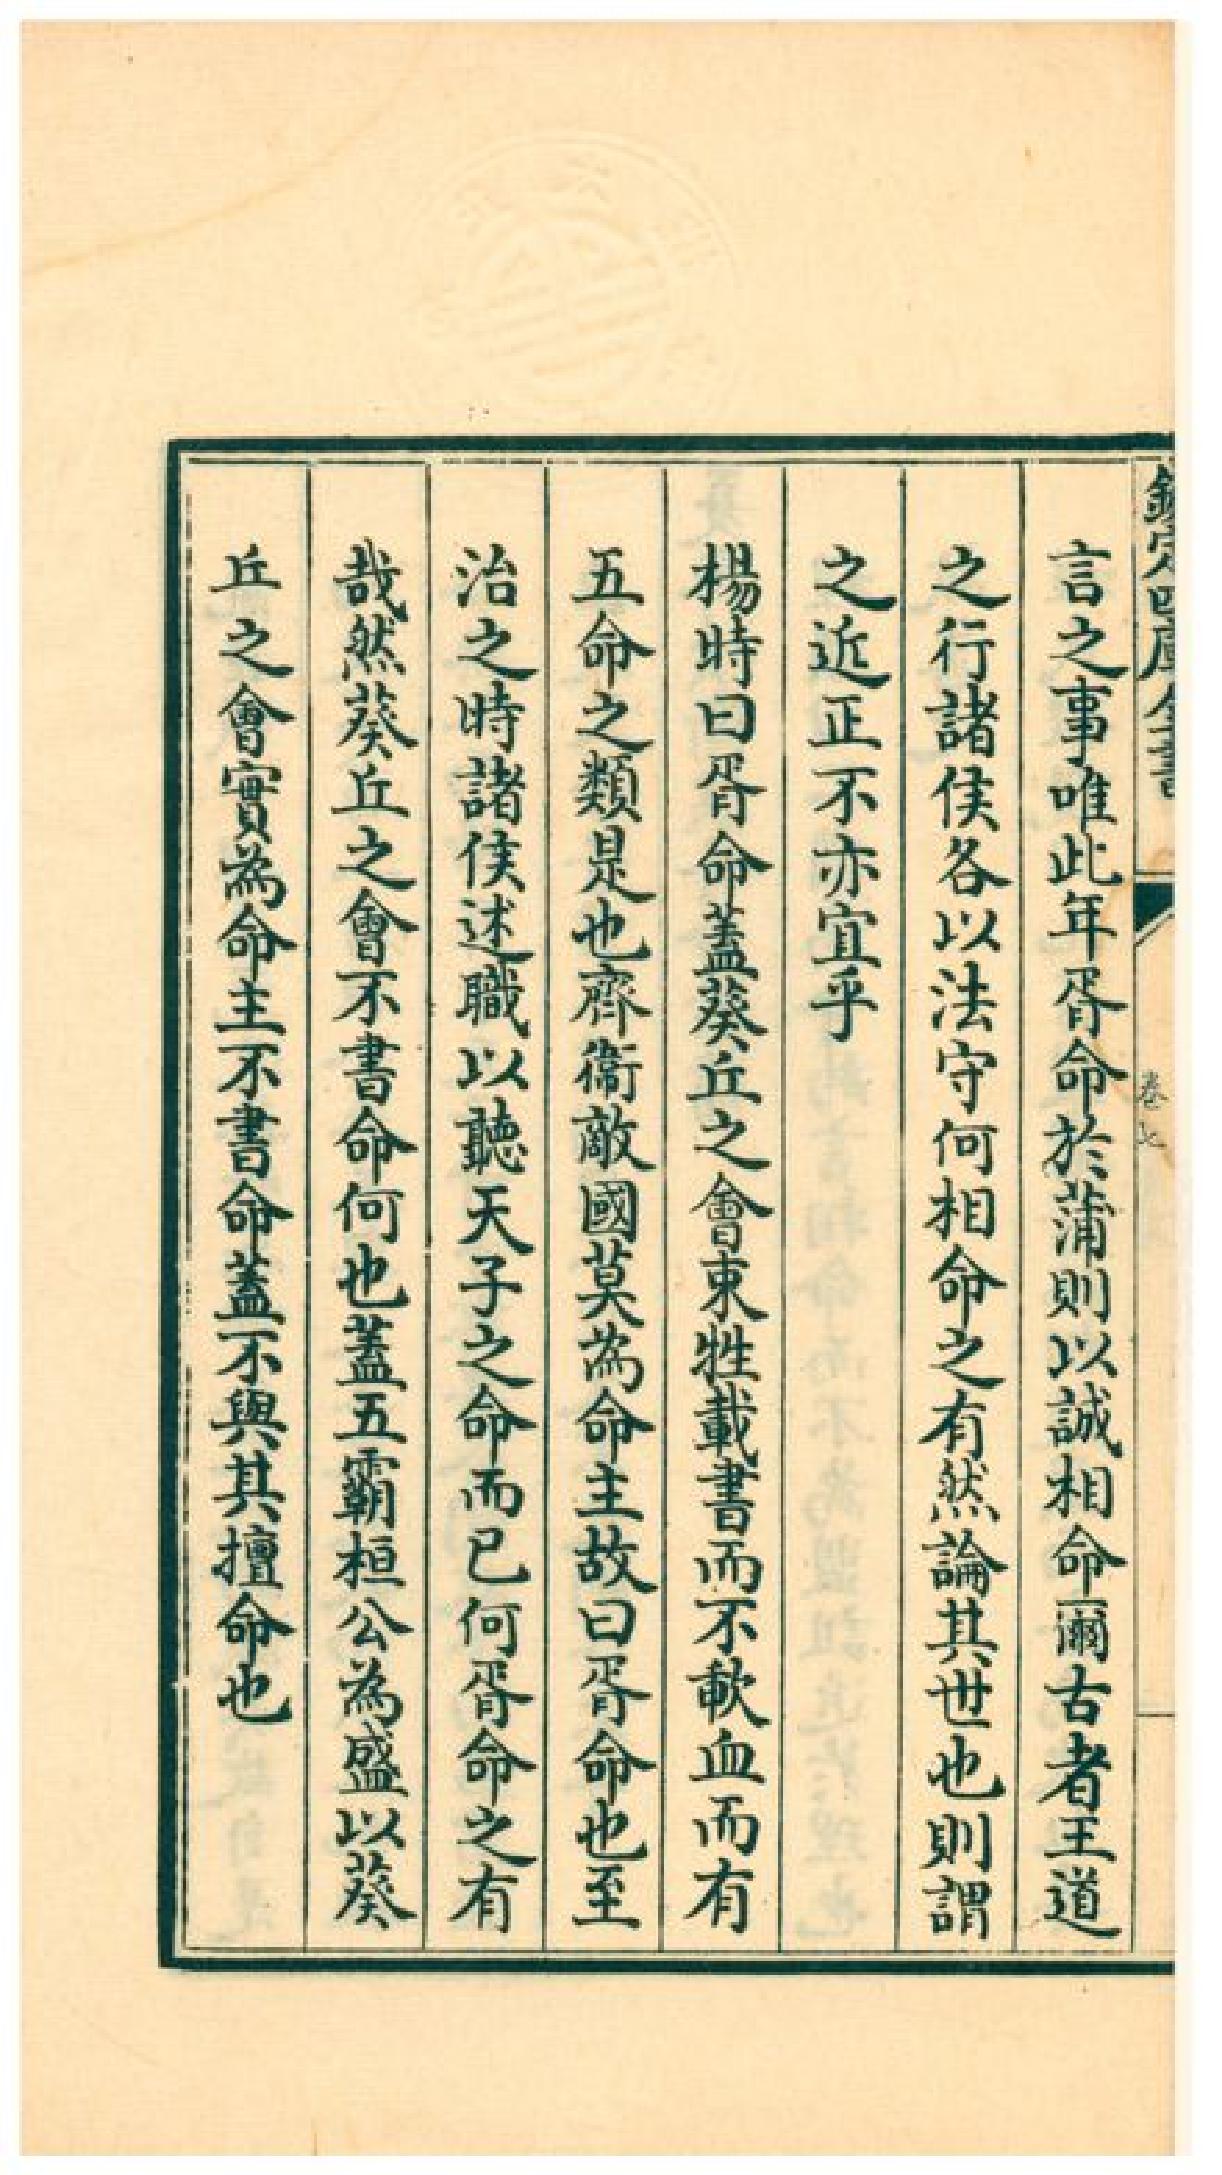 欽定四庫全書
卷七
言之事唯此年胥命於蒲則以誠相命爾古者王道
之行諸侯各以法守何相命之有然論其世也則謂
之近正不亦宜乎
楊時曰胥命蓋葵丘之會束牲載書而不歃血而有
五命之類是也齊衞敵國莫為命主故曰胥命也至
治之時諸侯述職以聽天子之命而已何胥命之有
哉然葵丘之會不書命何也蓋五霸桓公為盛以葵
丘之會實為命主不書命蓋不與其擅命也